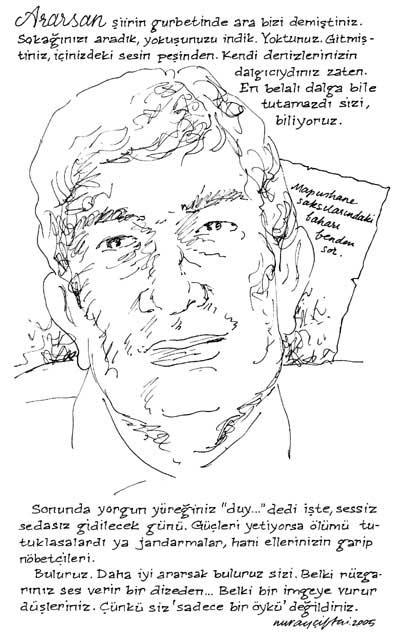 Ararsan şiirin gurbetinde ara bizi demiştiniz.
Sokağınızı aradık, yokuşunuzu indik. Yoktunuz. Gitmiş-
tiniz, içinizdeki sesin peşinden. Kendi denizlerinizin
dalgıcıydınız zaten.
En belalı dalga bile
tutamazdı sizi,
biliyoruz.
Mapushane
saksılarındaki
baharı
benden
sor.
Sonunda yorgun yüreğiniz "duy..." dedi işte, sessiz
sedasız gidilecek günü. Güçleri yetiyorsa ölümü tu-
tuklasalardı ya jandarmalar, hani ellerinizin garip
nöbetçileri.
Buluruz. Daha iyi ararsak buluruz sizi. Belki rüzga-
rınız ses verir bir dizeden... Belki bir imgeye vurur
düşleriniz. Çünkü siz 'sadece bir öykü' değildiniz.
nurayçiftçi 2005